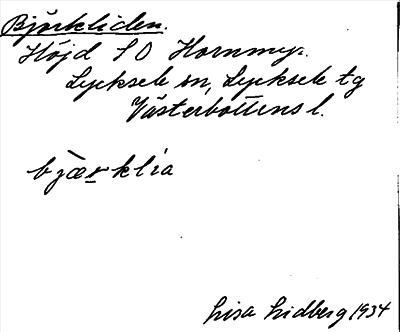 Björkliden.
Höjd SO Hornmyr.
Lycksele sn, Lycksele tg
Västerbottens l.
bjærklia
Lisa Lidberg 1934